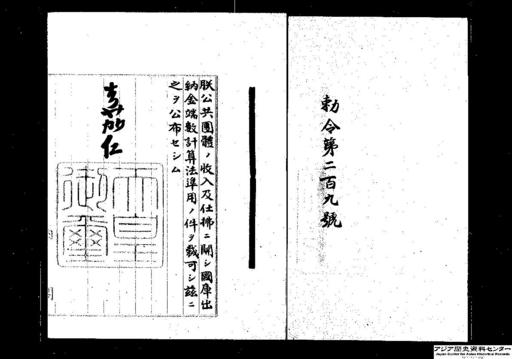 勅令第二百九號
朕公共團體ノ收入及仕拂ニ關シ國庫出
納金端數計算法準用ノ件ヲ裁可シ茲ニ
之ヲ公布セシム
嘉仁
天皇
御璽
アジア歴史資料センター
Japan Center for Asian Historical Records